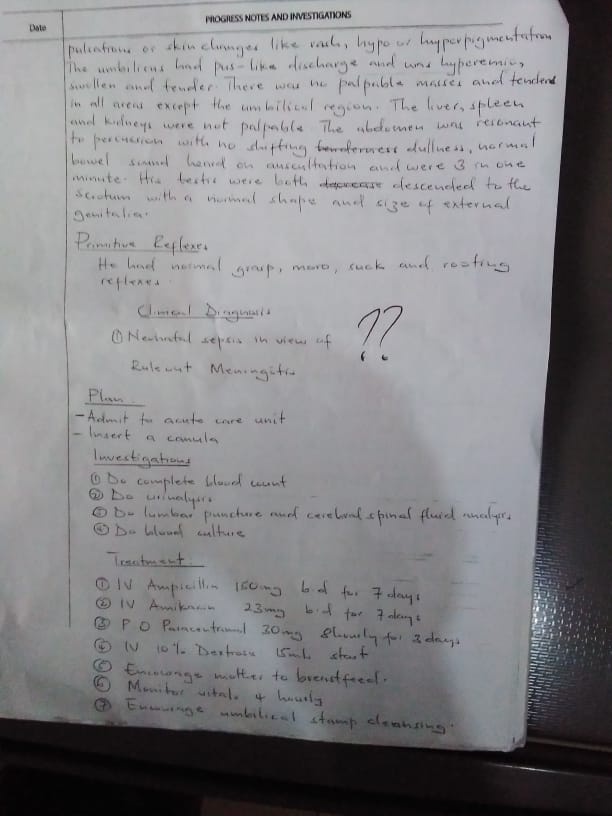 Date
PROGRESS NOTES AND INVESTIGATIONS
pulsations or skin changes like rash, hypo or hyperpigmentation
The umbilicus had pus-like discharge and was hyperemic,
swollen and tender. There was no palpable masses and tenderd
in all areas except the umbilical region. The liver, spleen
and kidneys were not palpable. The abdomen was resonant
to percussion with no shifting dullness, normal
bowel sound heard on auscultation and were 3 in one
minute. His testis were both descended to the
scrotum with a normal shape and size of external
genitalia.
Primitive Reflexes
He had normal grasp, moro, suck and rooting
reflexes.
Clinical Diagnosis
① Neonatal sepsis in view of ??
Rule out Meningitis
Plan
- Admit to acute care unit
- Insert a canula
Investigations
① Do complete blood count
② Do urinalysis
③ Do lumbar puncture and cerebral spinal fluid analysis
④ Do blood culture
Treatment
① IV Ampicillin 150mg b.d for 7 days
② IV Amikacin 23mg b.d for 7 days
③ P.O Paracetamol 30mg 8hourly for 3 days
④ IV 10% Dextrose 15mls start
⑤ Encourage mother to breastfeed.
⑥ Monitor vitals 4 hourly
⑦ Encourage umbilical stamp cleansing.